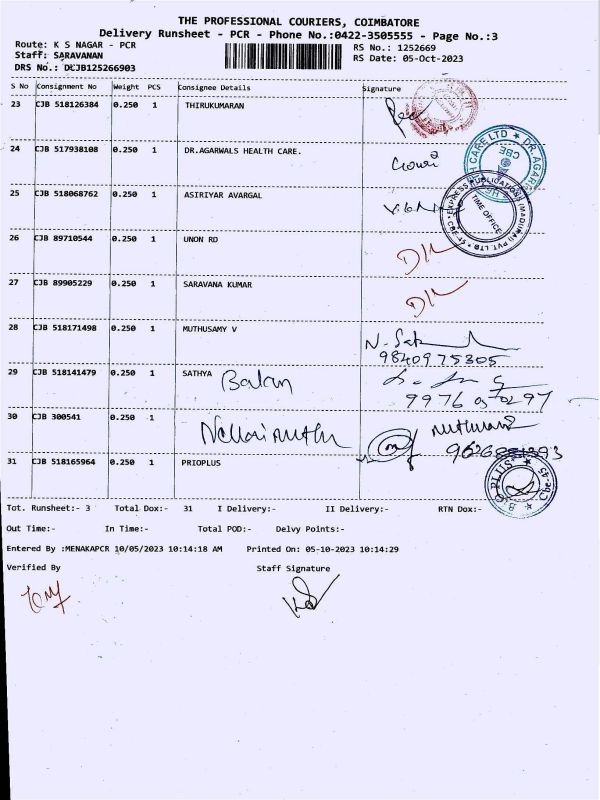 THE PROFESSIONAL COURIERS, COIMBATORE
Delivery Runsheet - PCR - Phone No.:0422-3505555 - Page No.:3
Route: K S NAGAR - PCR RS No.: 1252669
Staff: SARAVANAN RS Date: 05-Oct-2023
DRS No.: DCJB125266903
S No Consignment No Weight PCS Consignee Details Signature
23 CJB 518126384 0.250 1 THIRUKUMARAN
24 CJB 517938108 0.250 1 DR.AGARWALS HEALTH CARE.
CARE LTD ★ DR. AGAR
CBE
25 CJB 518068762 0.250 1 ASIRIYAR AVARGAL
EXPRESS PUBLICATIONS (MADURAI) PVT. LTD.
TIME OFFICE
26 CJB 89710544 0.250 1 UNON RD
27 CJB 89905229 0.250 1 SARAVANA KUMAR
28 CJB 518171498 0.250 1 MUTHUSAMY V
9840975305
29 CJB 518141479 0.250 1 SATHYA Balan
30 CJB 300541 0.250 1
31 CJB 518165964 0.250 1 PRIOPLUS
PLUS
Tot. Runsheet:- 3 Total Dox:- 31 I Delivery:- II Delivery:- RTN Dox:-
Out Time:- In Time:- Total POD:- Delvy Points:-
Entered By :MENAKAPCR 10/05/2023 10:14:18 AM Printed On: 05-10-2023 10:14:29
Verified By Staff Signature